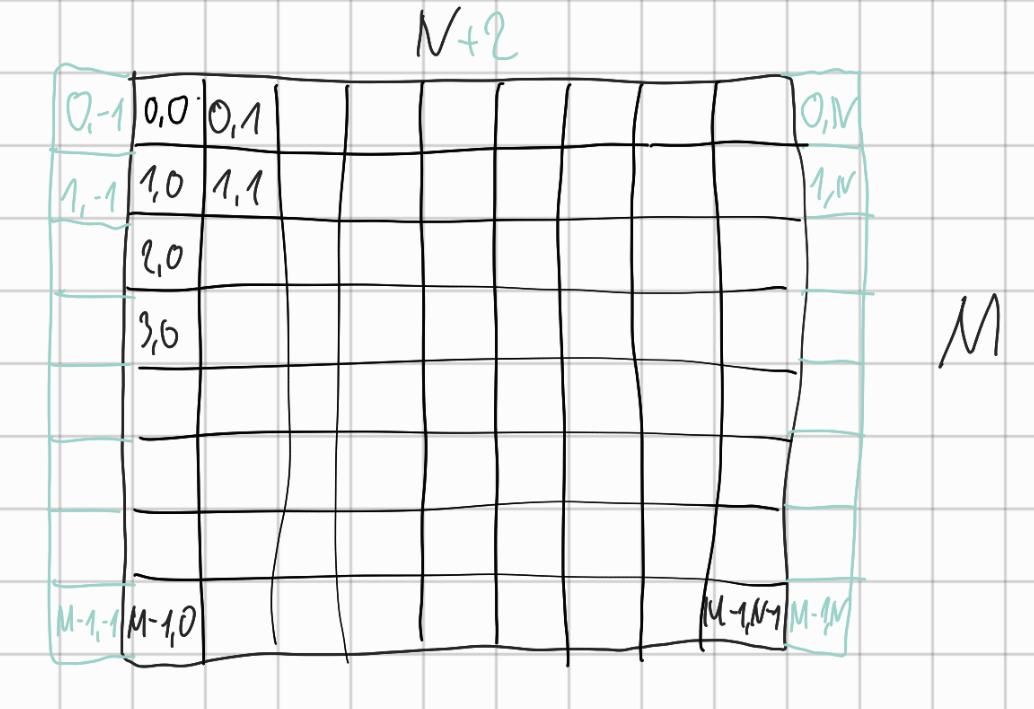 N+2
0,-1 0,0 0,1 0,N
1,-1 1,0 1,1 1,N
2,0
3,0
M
M-1,-1 M-1,0 M-1,N-1 M-1,N